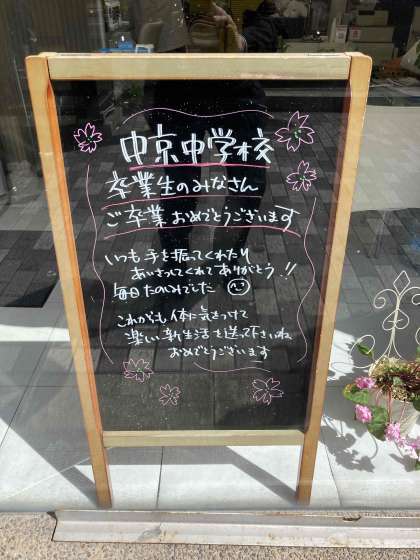 中京中学校
卒業生のみなさん
ご卒業おめでとうございます
いつも手を振ってくれたり
あいさつしてくれてありがとう!!
毎日たのしみでした
これからも体に気をつけて
楽しい新生活を送って下さいね
おめでとうございます